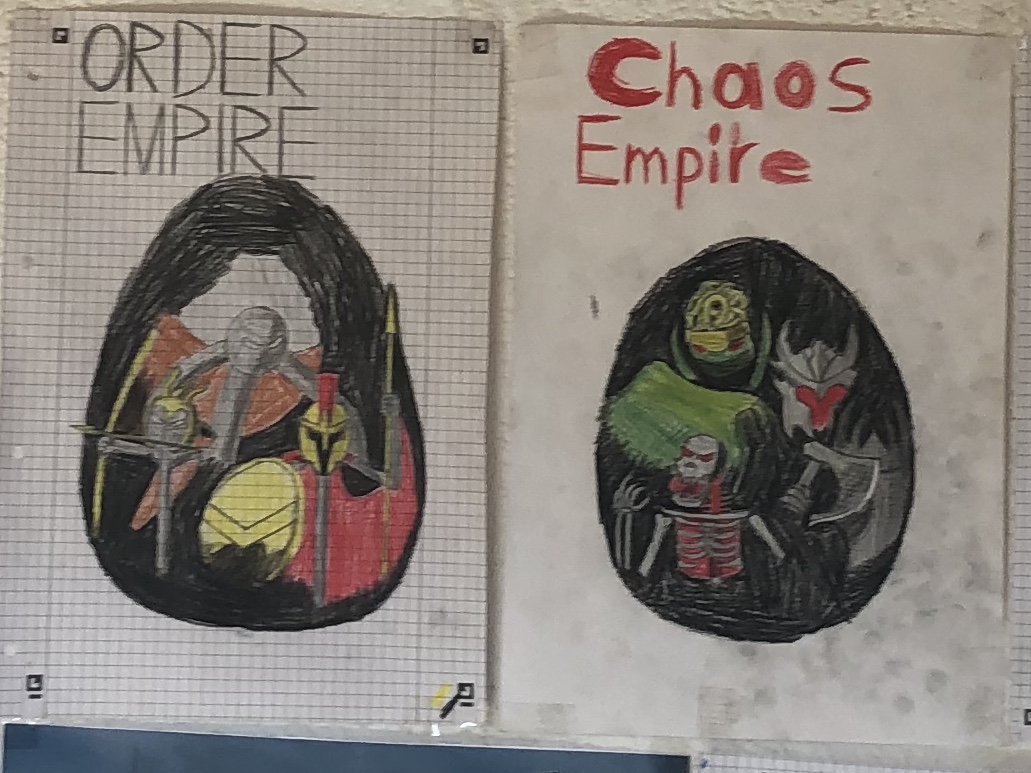 ORDER
EMPIRE
Chaos
Empire